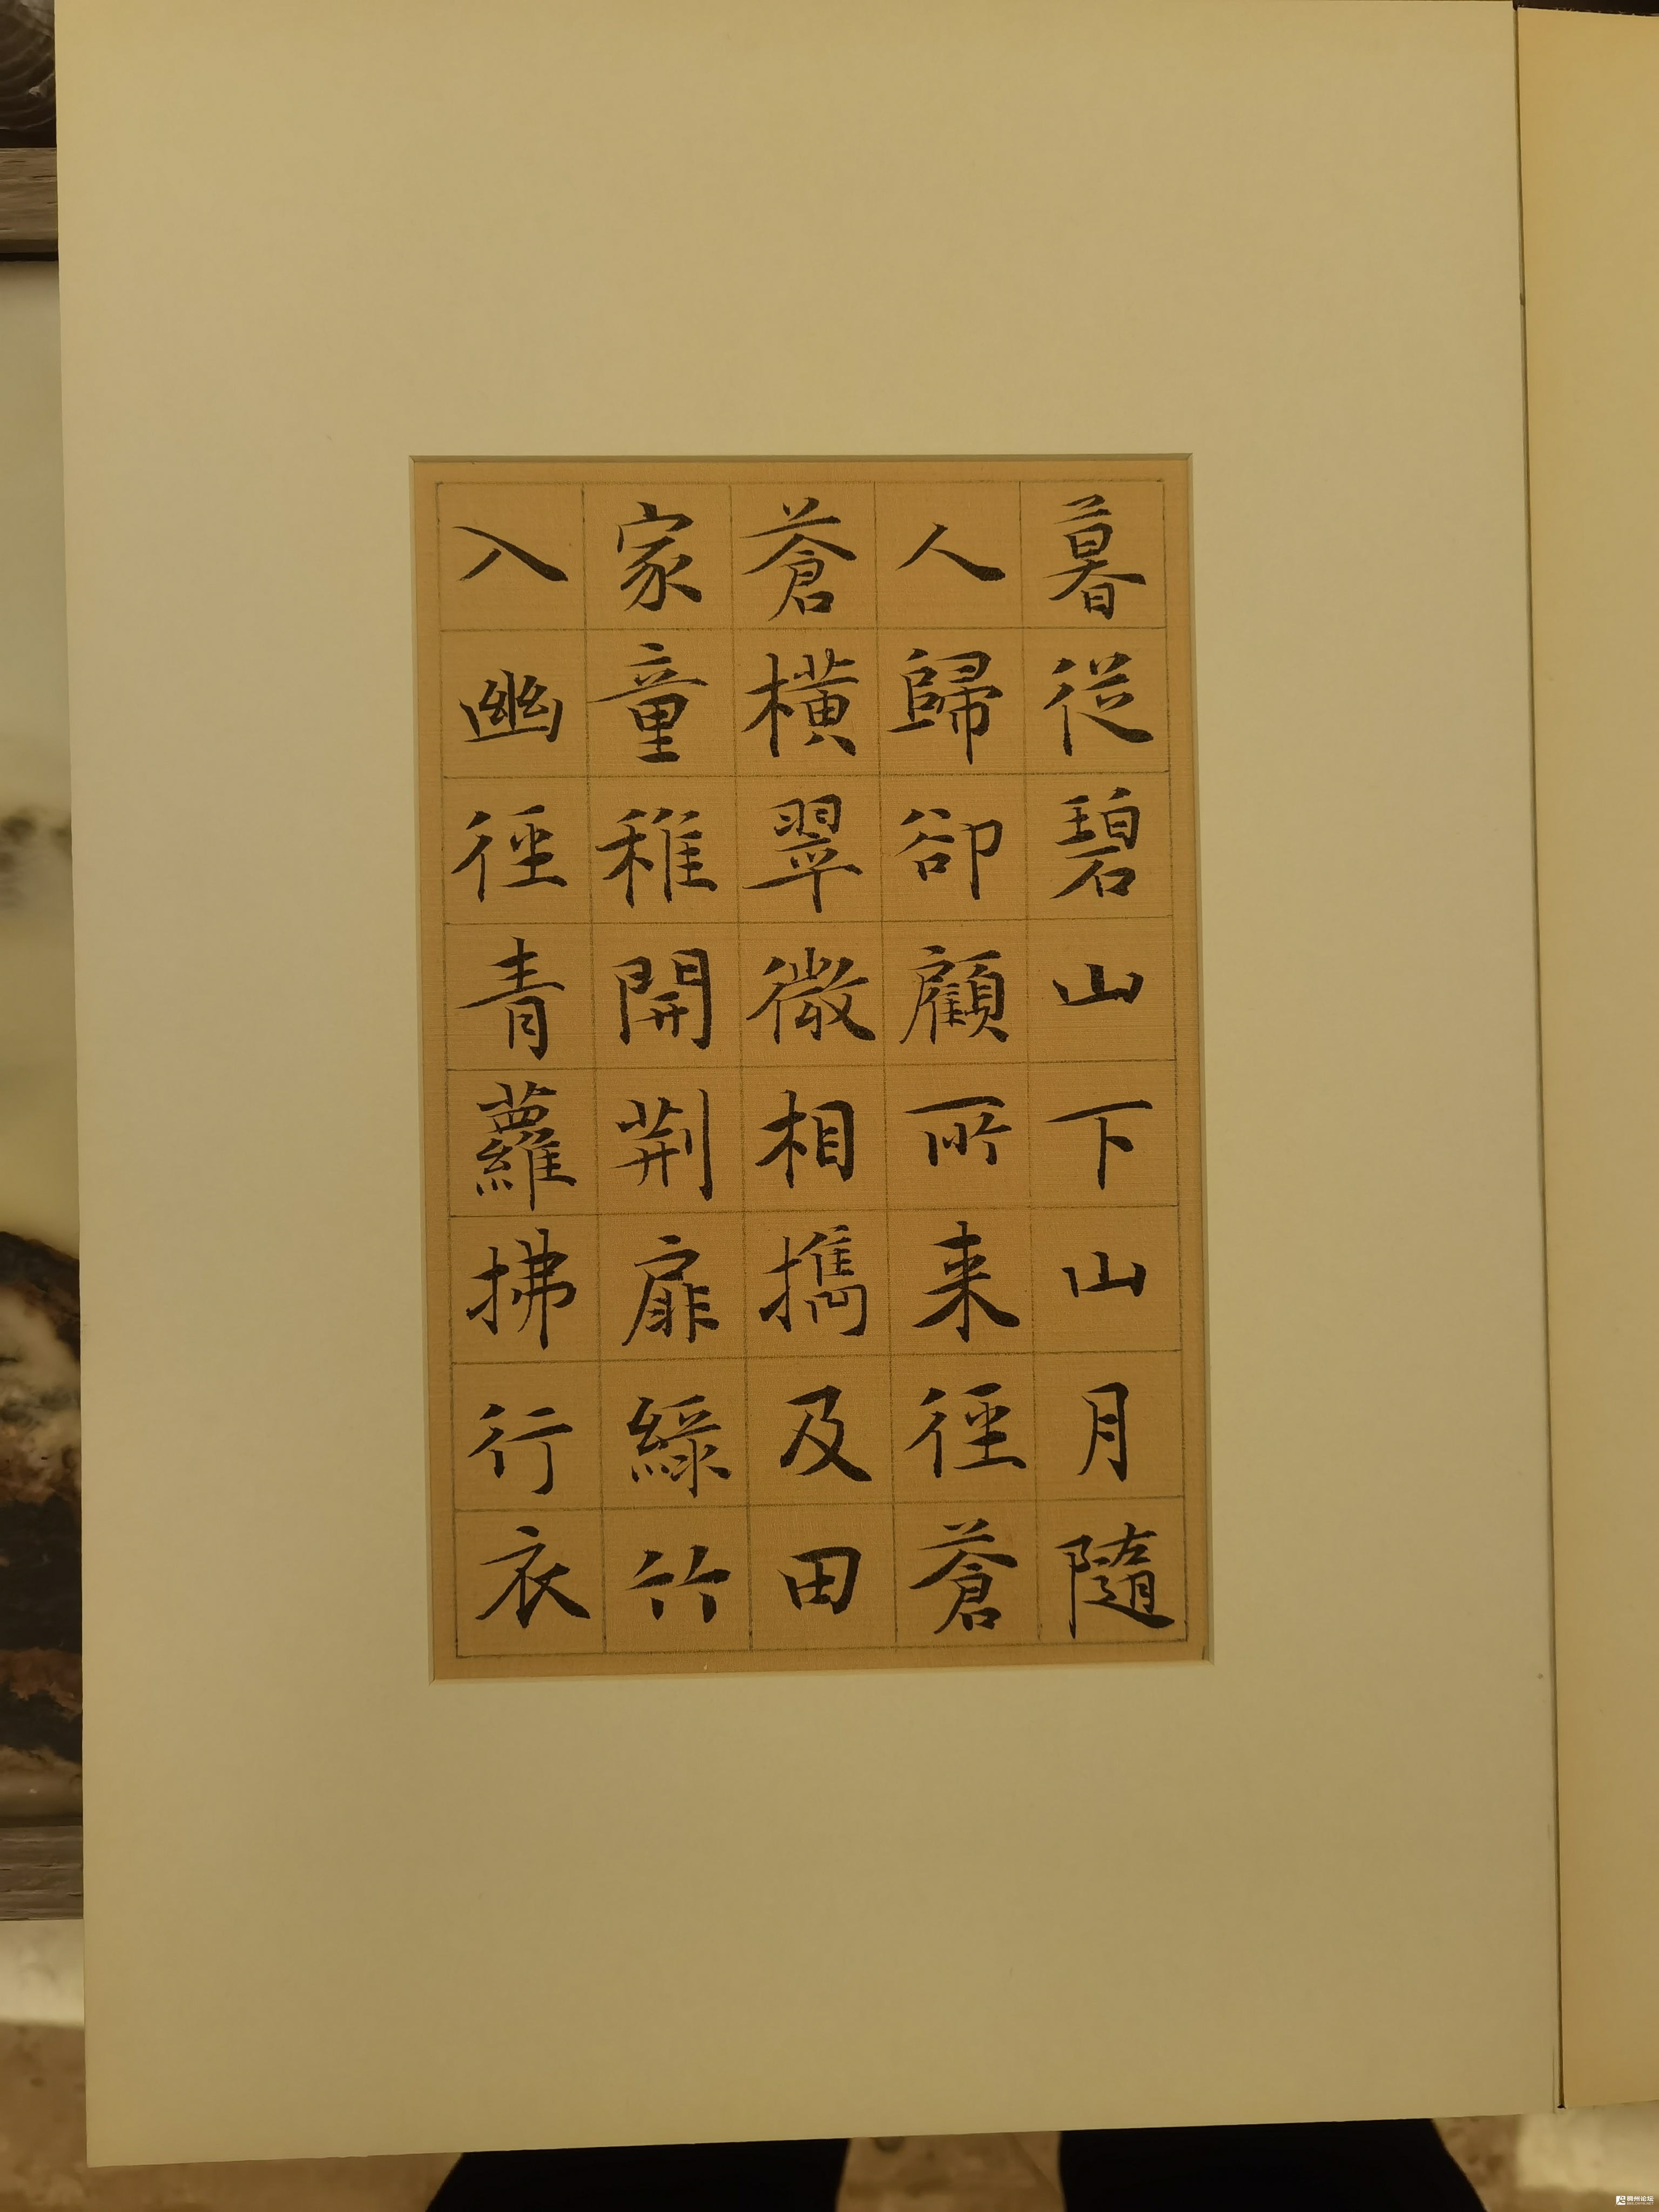 暮從碧山下山月隨
人歸卻顧所来徑蒼
蒼橫翠微相攜及田
家童稚開荆扉綠竹
入幽徑青蘿拂行衣